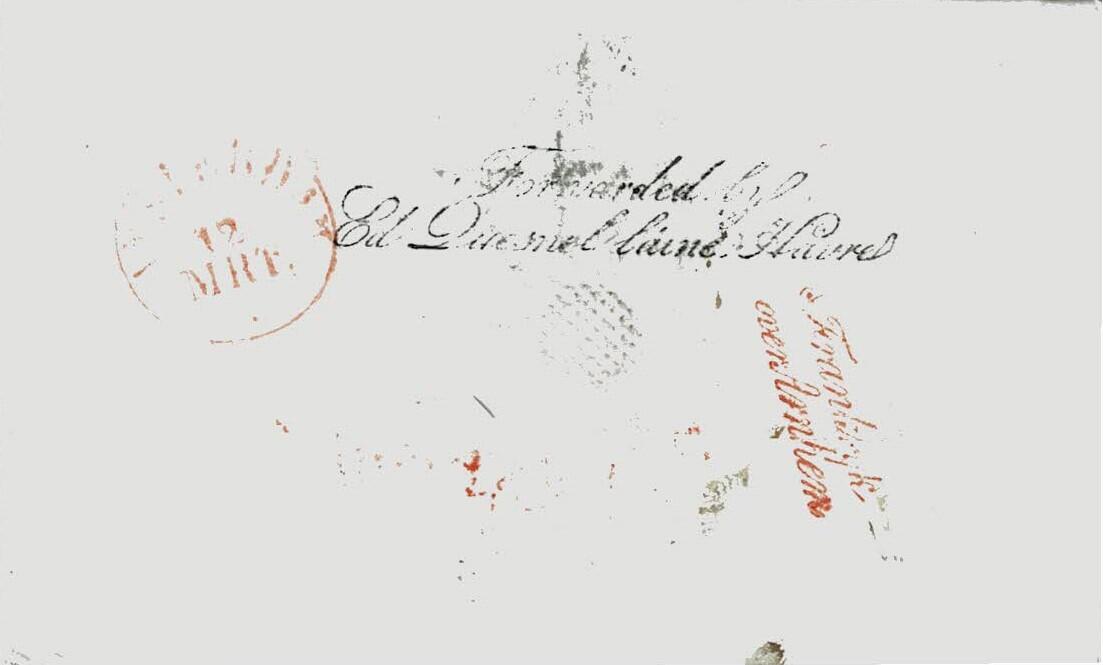 12
MRT.
Forwarded by
Ed Quesnel l'aîné Havre
Frankrijk
over Arnhem